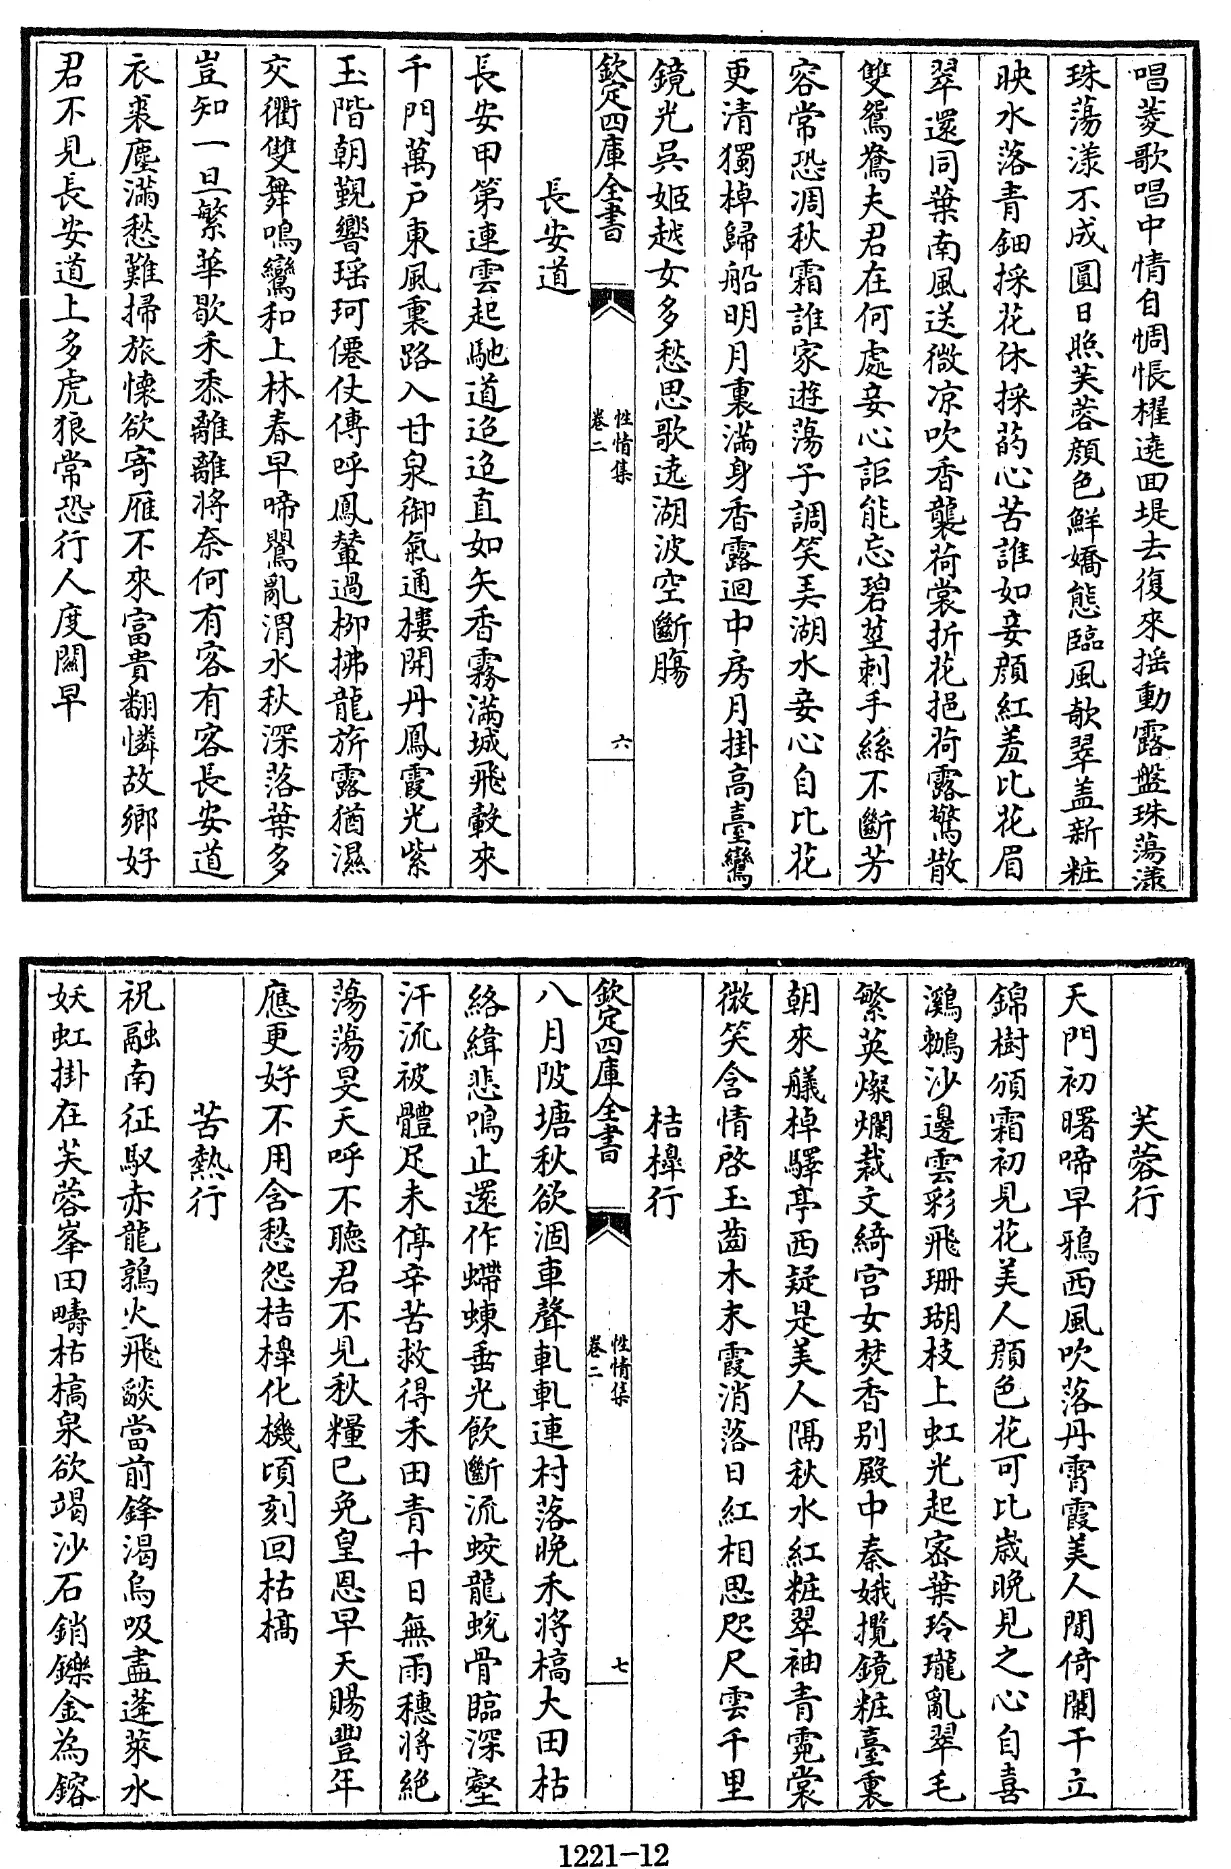 唱菱歌唱中情自惆悵櫂遶回堤去復來揺動露盤珠蕩漾
珠蕩漾不成圓日照芙蓉顔色鮮嬌態臨風欹翠盖新粧
映水落青鈿採花休採菂心苦誰如妾顔紅羞比花眉
翠還同葉南風送微凉吹香襲荷裳折花挹荷露驚散
雙鴛鴦夫君在何處妾心詎能忘碧莖刺手絲不斷芳
容常恐凋秋霜誰家遊蕩子調笑弄湖水妾心自比花
更清獨棹歸船明月裏滿身香露迴中房月掛高臺鸞
鏡光吳姬越女多愁思歌遶湖波空斷膓
欽定四庫全書
性情集
卷二
六
長安道
長安甲第連雲起馳道迢迢直如矢香霧滿城飛轂來
千門萬户東風裏路入甘泉御氣通樓開丹鳳霞光紫
玉階朝覲響瑶珂僊仗傳呼鳳輦過柳拂龍旂露猶濕
交衢雙舞鳴鸞和上林春早啼鸎亂渭水秋深落葉多
豈知一旦繁華歇禾黍離離將奈何有客有客長安道
衣裘塵滿愁難掃旅懷欲寄雁不來富貴翻憐故鄉好
君不見長安道上多虎狼常恐行人度關早
芙蓉行
天門初曙啼早鴉西風吹落丹霄霞美人閒倚闌干立
錦樹頒霜初見花美人顔色花可比歲晚見之心自喜
鸂鶒沙邊雲彩飛珊瑚枝上虹光起密葉玲瓏亂翠毛
繁英燦爛裁文綺宫女焚香别殿中秦娥攬鏡粧臺裏
朝來艤棹驛亭西疑是美人隔秋水紅粧翠袖青霓裳
微笑含情啓玉齒木末霞消落日紅相思咫尺雲千里
桔橰行
欽定四庫全書
性情集
卷二
七
八月陂塘秋欲涸車聲軋軋連村落晚禾將槁大田枯
絡緯悲鳴止還作螮蝀垂光飲斷流蛟龍蛻骨臨深壑
汗流被體足未停辛苦救得禾田青十日無雨穗將絶
蕩蕩旻天呼不聽君不見秋糧已免皇恩早天賜豐年
應更好不用含愁怨桔橰化機頃刻回枯槁
苦熱行
祝融南征馭赤龍鶉火飛燄當前鋒渴烏吸盡蓬萊水
妖虹掛在芙蓉峯田疇枯槁泉欲竭沙石銷鑠金為鎔
1221-12